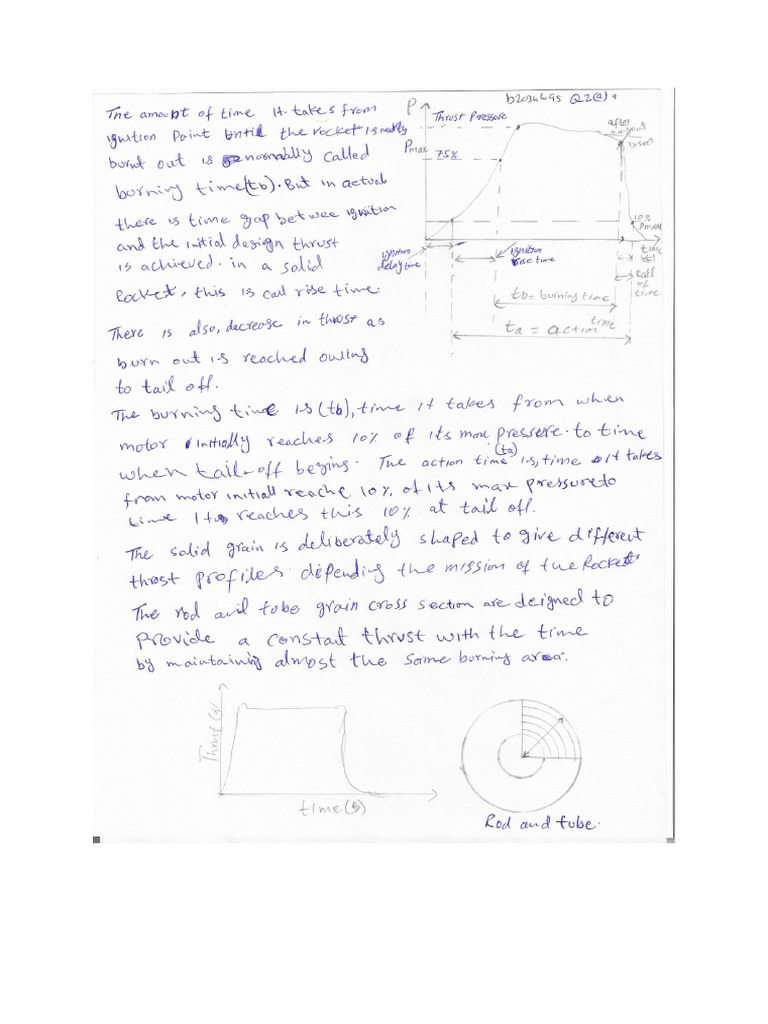 b2034695 Q2(a).
The amount of time it takes from
ignition Point Until the rocket is nearly
burnt out is normally called
burning time(tb). But in actual
there is time gap betwee ignition
and the initial design thrust
is achieved. in a solid
Rocket, this is call rise time.
There is also, decrease in thrust as
burn out is reached owing
to tail off.
P
Thrust Pressure
Pmax
75%
after
bisect
10%
Pmax
ignition
delay time
ignition
rise time
time
(t)
tail
of
time
tb = burning time
ta = action time
The burning time is (tb), time it takes from when
motor initially reaches 10% of its max pressere. to time
when tail-off begins. The action time (ta) is, time it takes
from motor initiall reache 10% of its max pressure to
time it reaches this 10% at tail off.
The solid grain is deliberately shaped to give different
thrust profiles depending the mission of the Rocket.
The rod and tube grain cross section are deigned to
Provide a constat thrust with the time
by maintaining almost the same burning area.
Thrust
time
Rod and tube.